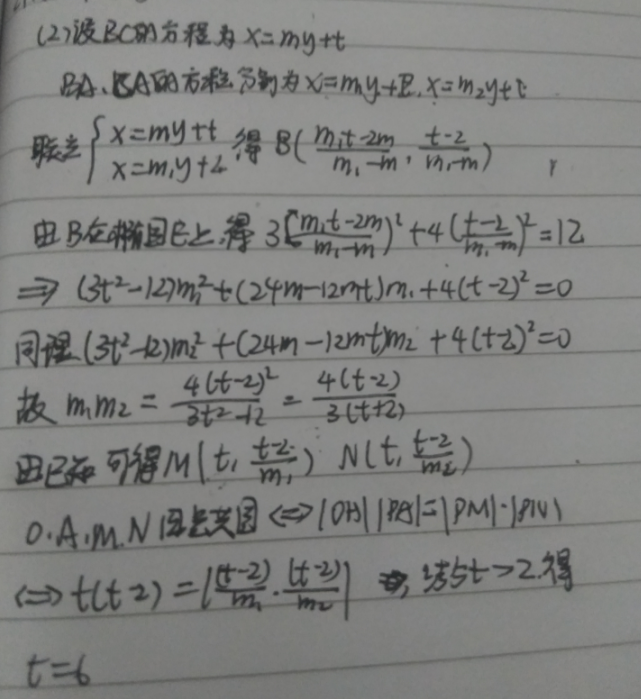 (2)设BC的方程为 x=my+t
BA、CA的方程分别为 x=m₁y+2, x=m₂y+t
联立 { x=my+t x=m₁y+2 得 B( (m₁t-2m)/(m₁-m), (t-2)/(m₁-m) )
由B在椭圆E上,得 3[(m₁t-2m)/(m₁-m)]²+4((t-2)/(m₁-m))²=12
⇒ (3t²-12)m₁²+(24m-12mt)m₁+4(t-2)²=0
同理(3t²-12)m₂²+(24m-12mt)m₂+4(t-2)²=0
故 m₁m₂ = 4(t-2)²/(3t²-12) = 4(t-2)/(3(t+2))
由已知可得M(t, (t-2)/m₁) N(t, (t-2)/m₂)
O.A.M.N四点共圆 ⇔ |OP||PA|=|PM|·|PN|
⇔ t(t-2) = |(t-2)/m₁ · (t-2)/m₂| , 结合t>2.得
t=6